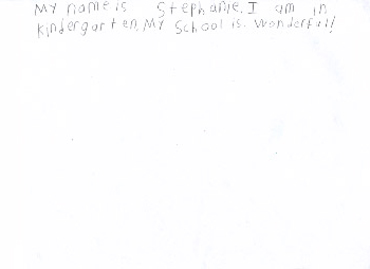 My name is Stephanie. I am in
kindergarten. My School is. Wonderful!